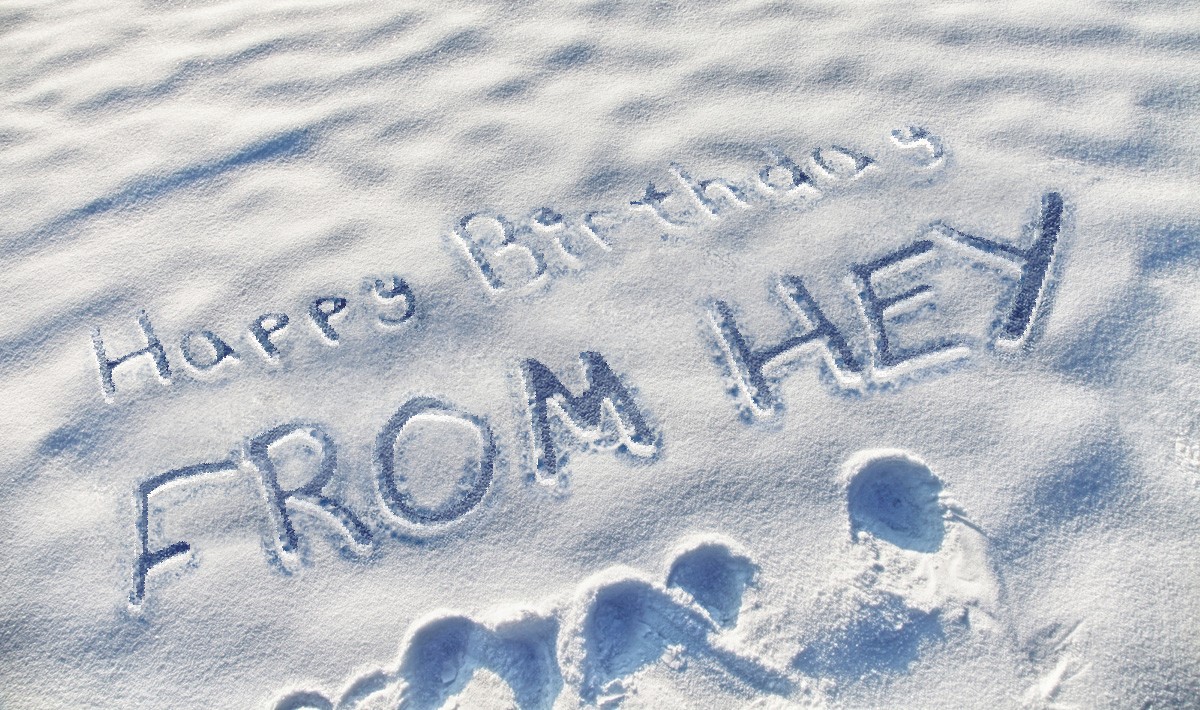 Happy Birthday
FROM HEY